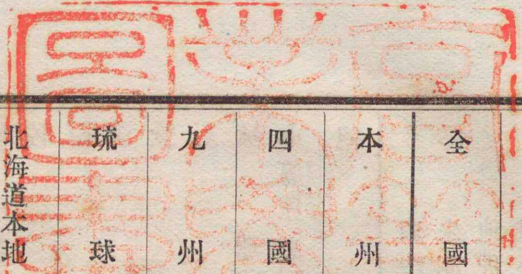 全國
本州
四國
九州
琉球
北海道本地